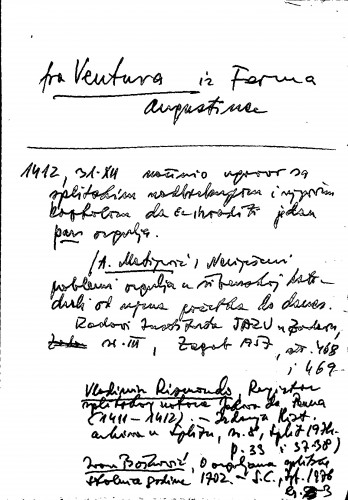 fra Ventura iz Ferma
augustinac
1412, 31. XII načinio ugovor sa
splitskim nadbiskupom i njegovim
kaptolom da će izraditi jedan
par orgulja.
/A. Matijević,
problemi orgulja u šibenskoj kate-
drali od početka do danas.
Radovi Instituta JAZU u Zadru,
sv. III, Zagreb 1957, str. 468
i 469.
Vladimir Rismondo, Registar
splitskog notara Ivana de Parma
(1411-1412). - Izdanja Hist.
arhiva u Splitu, n. 8, Split 1974.
p. 33 i 37-38)
Ivan Bošković, O orguljama splitske
stolnice godine 1702. - S.C., Split 1976